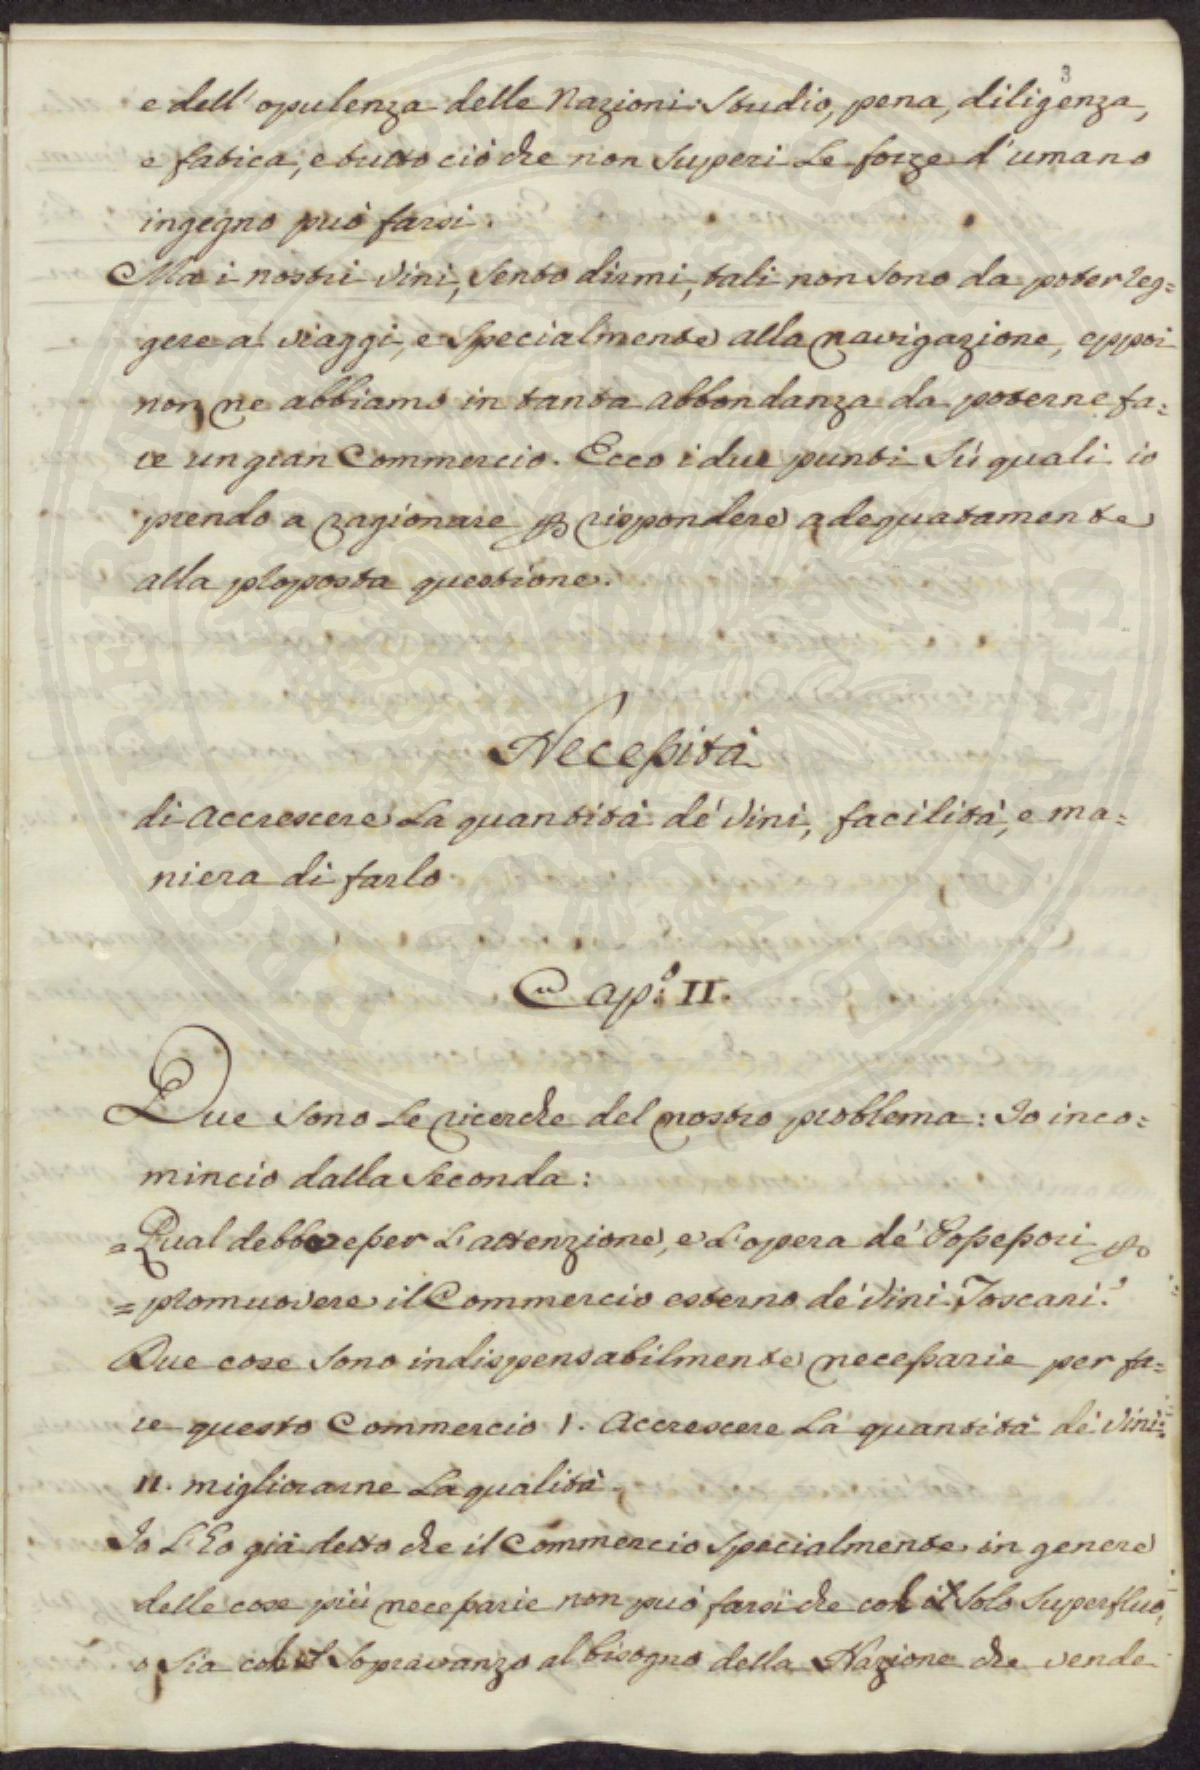 3
e dell'opulenza delle Nazioni. Studio, pena, diligenza,
e fatica, e tutto ciò che non superi le forze d'umano
ingegno può farsi.
Ma i nostri Vini, sento dirmi, tali non sono da poter reg=
gere a' viaggi, e specialmente alla navigazione, eppoi
non ne abbiamo in tanta abbondanza da poterne fa=
re un gran Commercio. Ecco i due punti sù quali io
prendo a ragionare p rispondere adeguatamente
alla proposta questione.
Necessità
di Accrescere la quantità de' Vini, facilità, e ma=
niera di farlo
Cap.o II.
Due sono le ricerche del nostro problema: Io inco=
mincio dalla seconda:
= Qual debba esser l'attenzione, e l'opera de' Possessori p
= promuovere il Commercio esterno de' Vini Toscani.
Due cose sono indispensabilmente necessarie per fa=
re questo Commercio I. Accrescere la quantità de' Vini:
II. migliorarne la qualità.
Io l'ho già detto che il Commercio specialmente in genere
delle cose più necessarie non può farsi che col solo superfluo,
o sia col sopravanzo al bisogno della Nazione che vende
PROPERTIES PUBLICAE AUGE